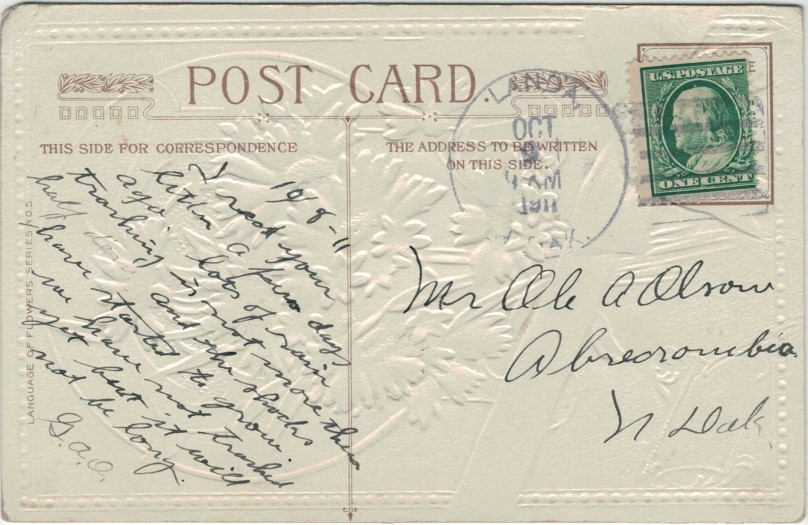 POST CARD.
THIS SIDE FOR CORRESPONDENCE
THE ADDRESS TO BE WRITTEN
ON THIS SIDE.
U.S. POSTAGE
ONE CENT
LANDA
OCT
9
4 AM
1911
N. DAK.
10/8-11
I recd your
letter a few days
ago. lots of rain
trashing is not more then
half done and the shocks
have started to grow.
we have not trashed
yet but it will
not be long.
G.A.O.
Mr Ole A Olson
Abrecrombia
N Dak.
LANGUAGE OF FLOWERS SERIES NO 5.